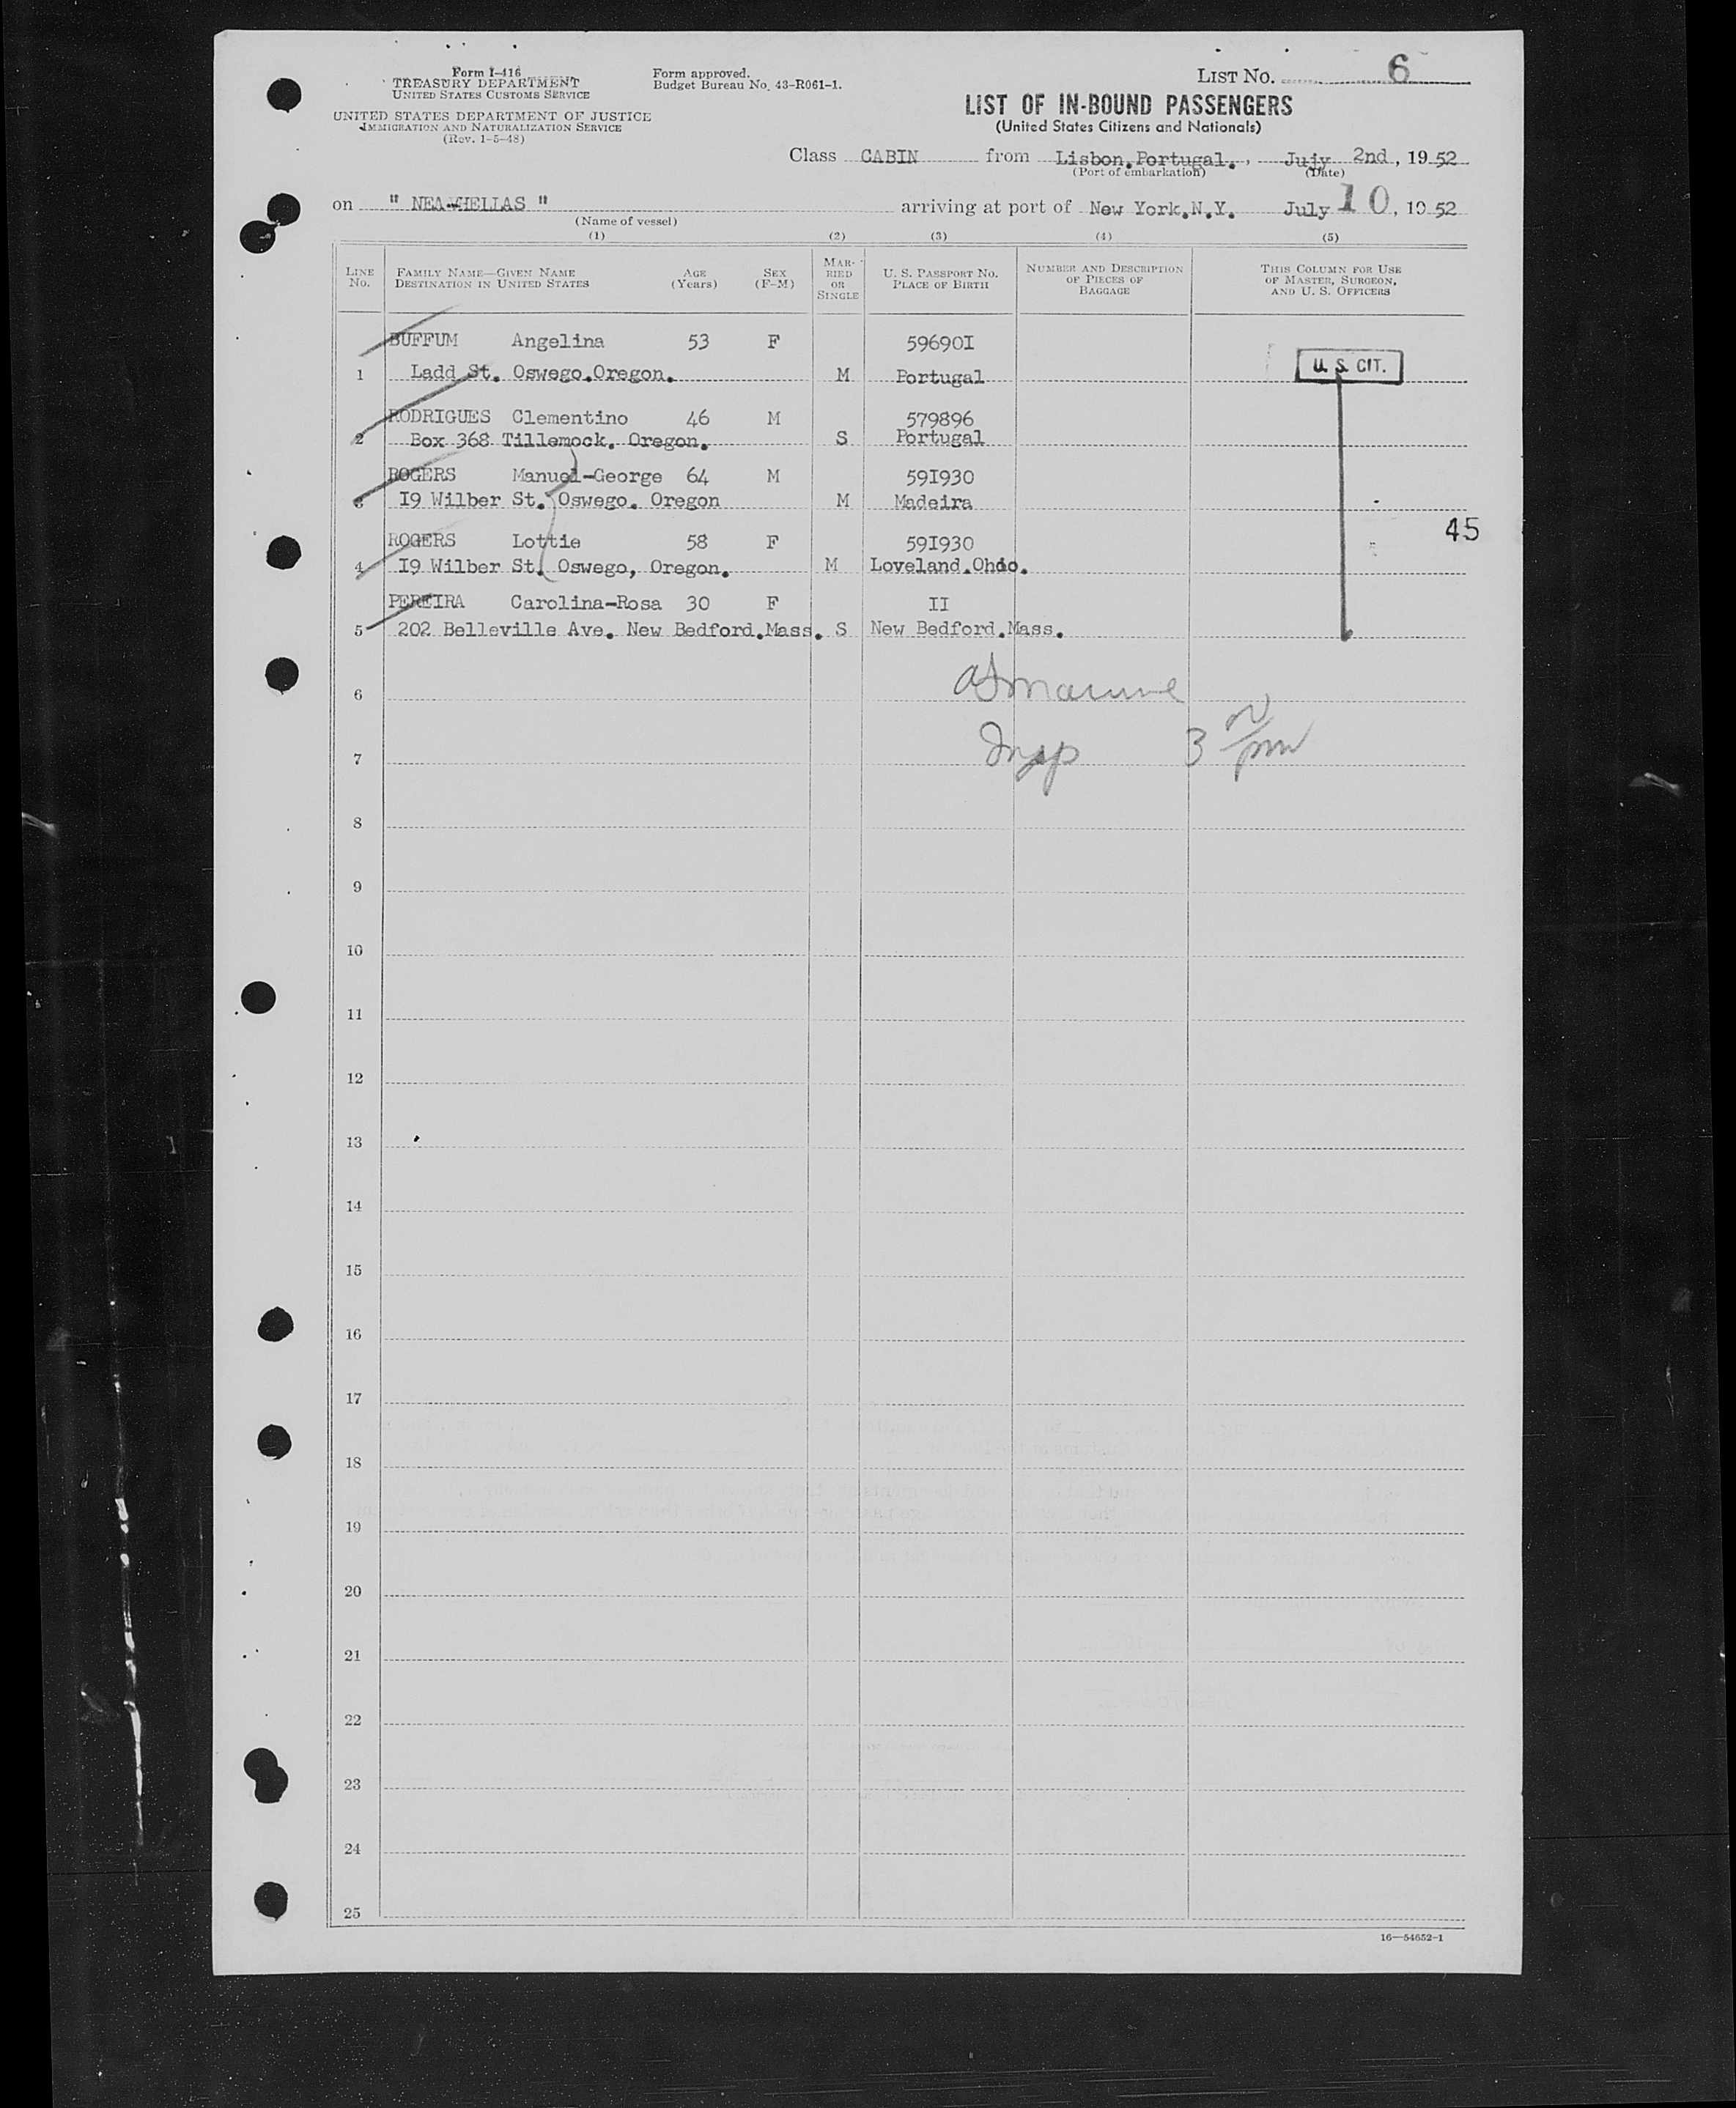 Form I-416
TREASURY DEPARTMENT
UNITED STATES CUSTOMS SERVICE
UNITED STATES DEPARTMENT OF JUSTICE
IMMIGRATION AND NATURALIZATION SERVICE
(Rev. 1-5-48)
Form approved.
Budget Bureau No. 43-R061-1.
LIST No. 6
LIST OF IN-BOUND PASSENGERS
(United States Citizens and Nationals)
Class CABIN from Lisbon.Portugal. , Jujy 2nd, 1952
(Port of embarkation) (Date)
on " NEA-HELLAS " arriving at port of New York.N.Y. July 10, 1952
(Name of vessel)
(1) (2) (3) (4) (5)
LINE No. FAMILY NAME—GIVEN NAME DESTINATION IN UNITED STATES AGE (Years) SEX (F-M) MARRIED OR SINGLE U. S. PASSPORT NO. PLACE OF BIRTH NUMBER AND DESCRIPTION OF PIECES OF BAGGAGE THIS COLUMN FOR USE OF MASTER, SURGEON, AND U. S. OFFICERS
BUFFUM Angelina 53 F 59690I
1 Ladd St. Oswego.Oregon. M Portugal U. S. CIT.
RODRIGUES Clementino 46 M 579896
2 Box 368 Tillemock. Oregon. S Portugal
ROGERS Manuel-George 64 M 59I930
3 I9 Wilber St. Oswego. Oregon M Madeira
45
ROGERS Lottie 58 F 59I930
4 I9 Wilber St. Oswego, Oregon. M Loveland.Ohio.
PEREIRA Carolina-Rosa 30 F II
5 202 Belleville Ave. New Bedford.Mass. S New Bedford.Mass.
6
7 Insp 3 pm
8
9
10
11
12
13
14
15
16
17
18
19
20
21
22
23
24
25
16—54652-1